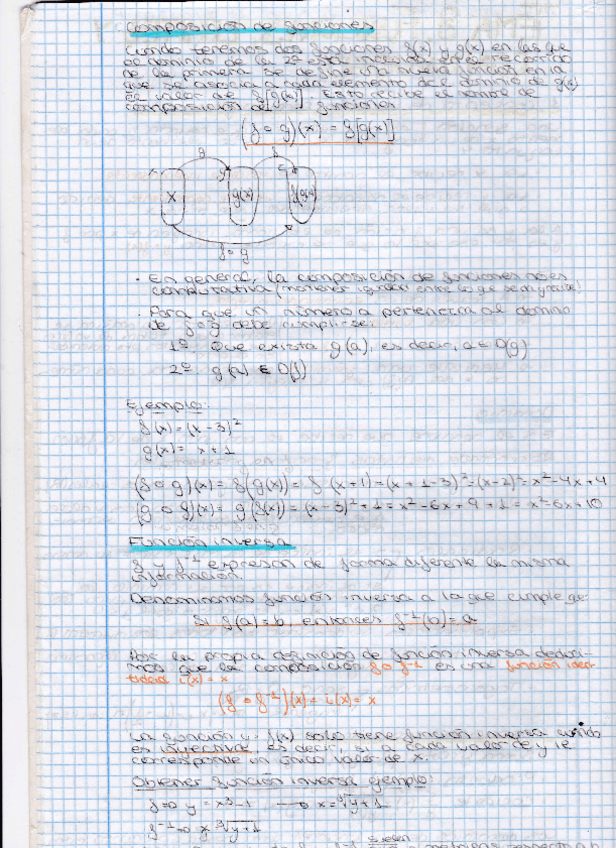 Composición de funciones
Cuando tenemos dos funciones f(x) y g(x) en las que
el dominio de la 2ª está incluido en el recorrido
de la primera se define una nueva función en la
que se asocia a cada elemento del dominio de g(x)
el valor de f[g(x)]. Esto recibe el nombre de
composición de funciones
(f o g)(x) = f[g(x)]
g f
x g(x) f(g(x))
f o g
· En general, la composición de funciones no es
conmutativa
· Para que un número a pertenezca al dominio
de f o g debe cumplirse:
1º Que exista g(a), es decir, a ∈ D(g)
2º g(a) ∈ D(f)
Ejemplo:
f(x) = (x-3)²
g(x) = x+1
(f o g)(x) = f(g(x)) = f(x+1) = (x+1-3)² = (x-2)² = x²-4x+4
(g o f)(x) = g(f(x)) = (x-3)²+1 = x²-6x+9+1 = x²-6x+10
Función inversa
f y f⁻¹ expresan de forma diferente la misma
información.
Denominamos función inversa a la que cumple qe:
Si f(a)=b, entonces f⁻¹(b)=a
Por la propia definición de función inversa deduci-
mos que la composición f o f⁻¹ es una función iden-
tidad i(x)=x
(f o f⁻¹)(x) = i(x) = x
Un función y=f(x) solo tiene función inversa cuando
es inyectiva, es decir, si a cada valor de y le
corresponde un único valor de x.
Obtener función inversa ejemplo:
f⇒ y = x³-1 → x=∛y+1
f⁻¹⇒ x ∛y+1